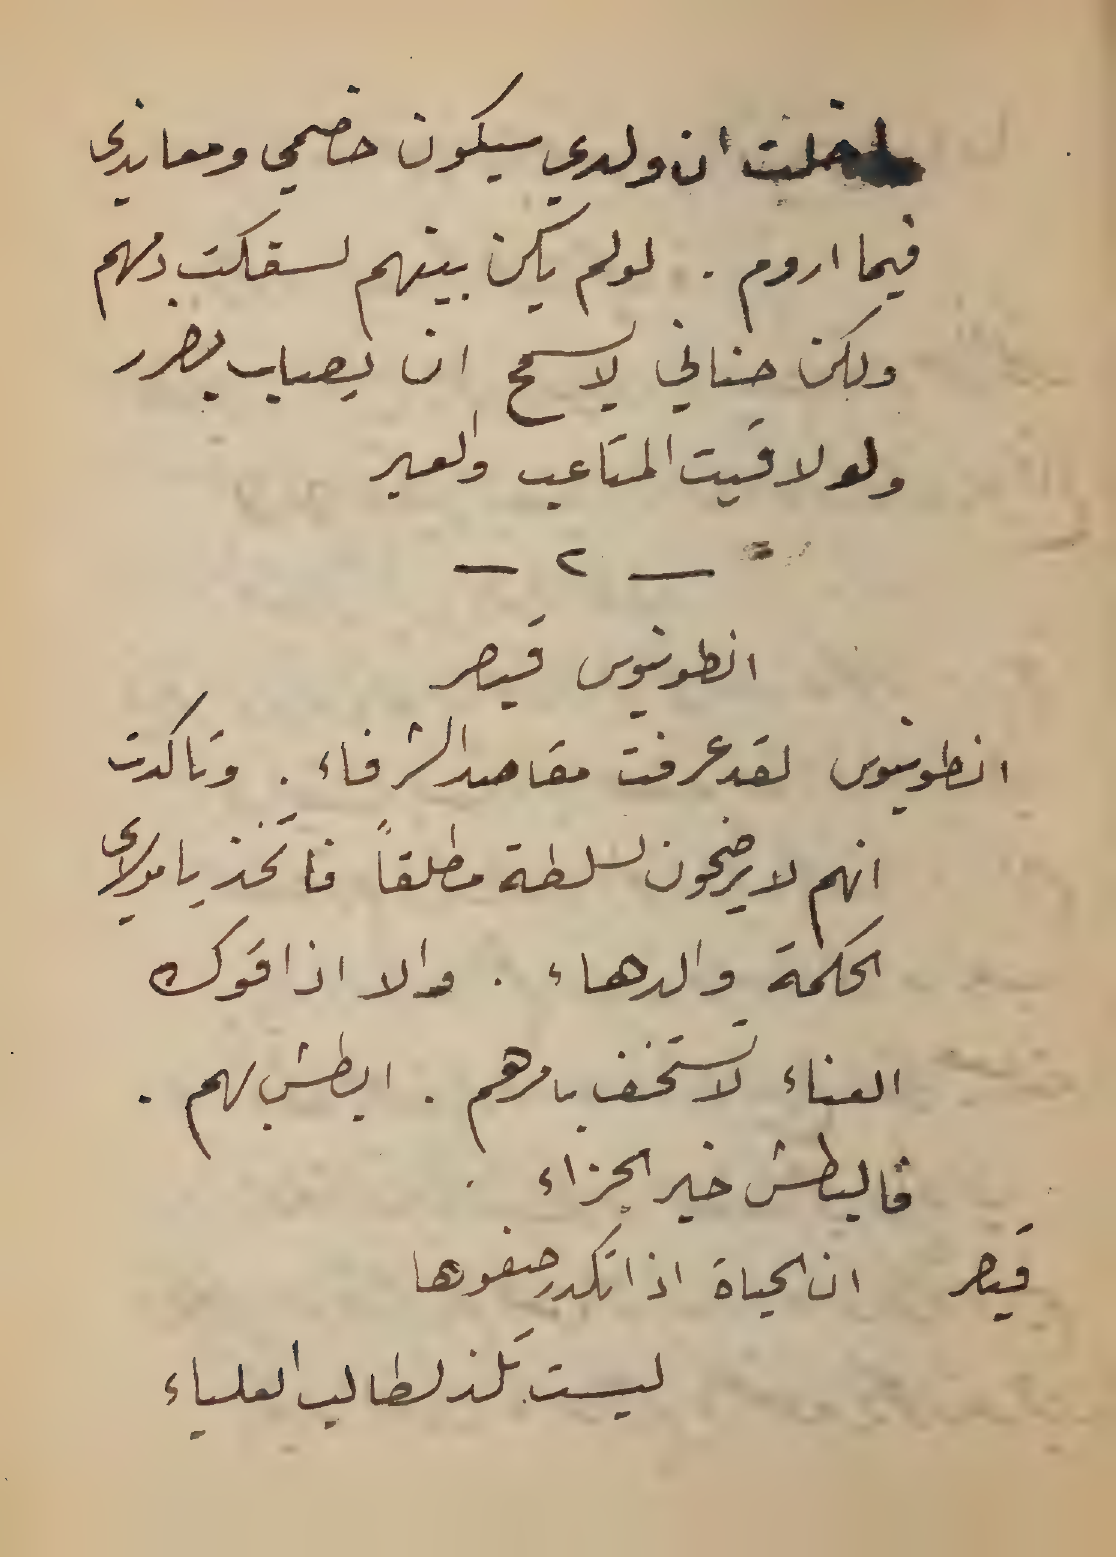 لما خلت ان ولدي سيكون خصمي ومعاندي
فيما اروم . لو لم يكن بينهم لسفكت دمهم
ولكن حناني لا يسمح ان يصاب بضرر
ولو لاقيت المتاعب والعبر
— ٢ —
انطونيوس قيصر
انطونيوس لقد عرفت مقاصد الشرفاء . وتاكدت
انهم لا يرضخون لسلطة مطلقاً فاتخذ يا مولاي
الحكمة والدهاء . والا اذاقوك
العناء لا تستخف بامرهم . ابطش بهم .
فالبطش خير الجزاء .
قيصر ان الحياة اذا تكدر صفوها
ليست تلذ لطالب العلياء